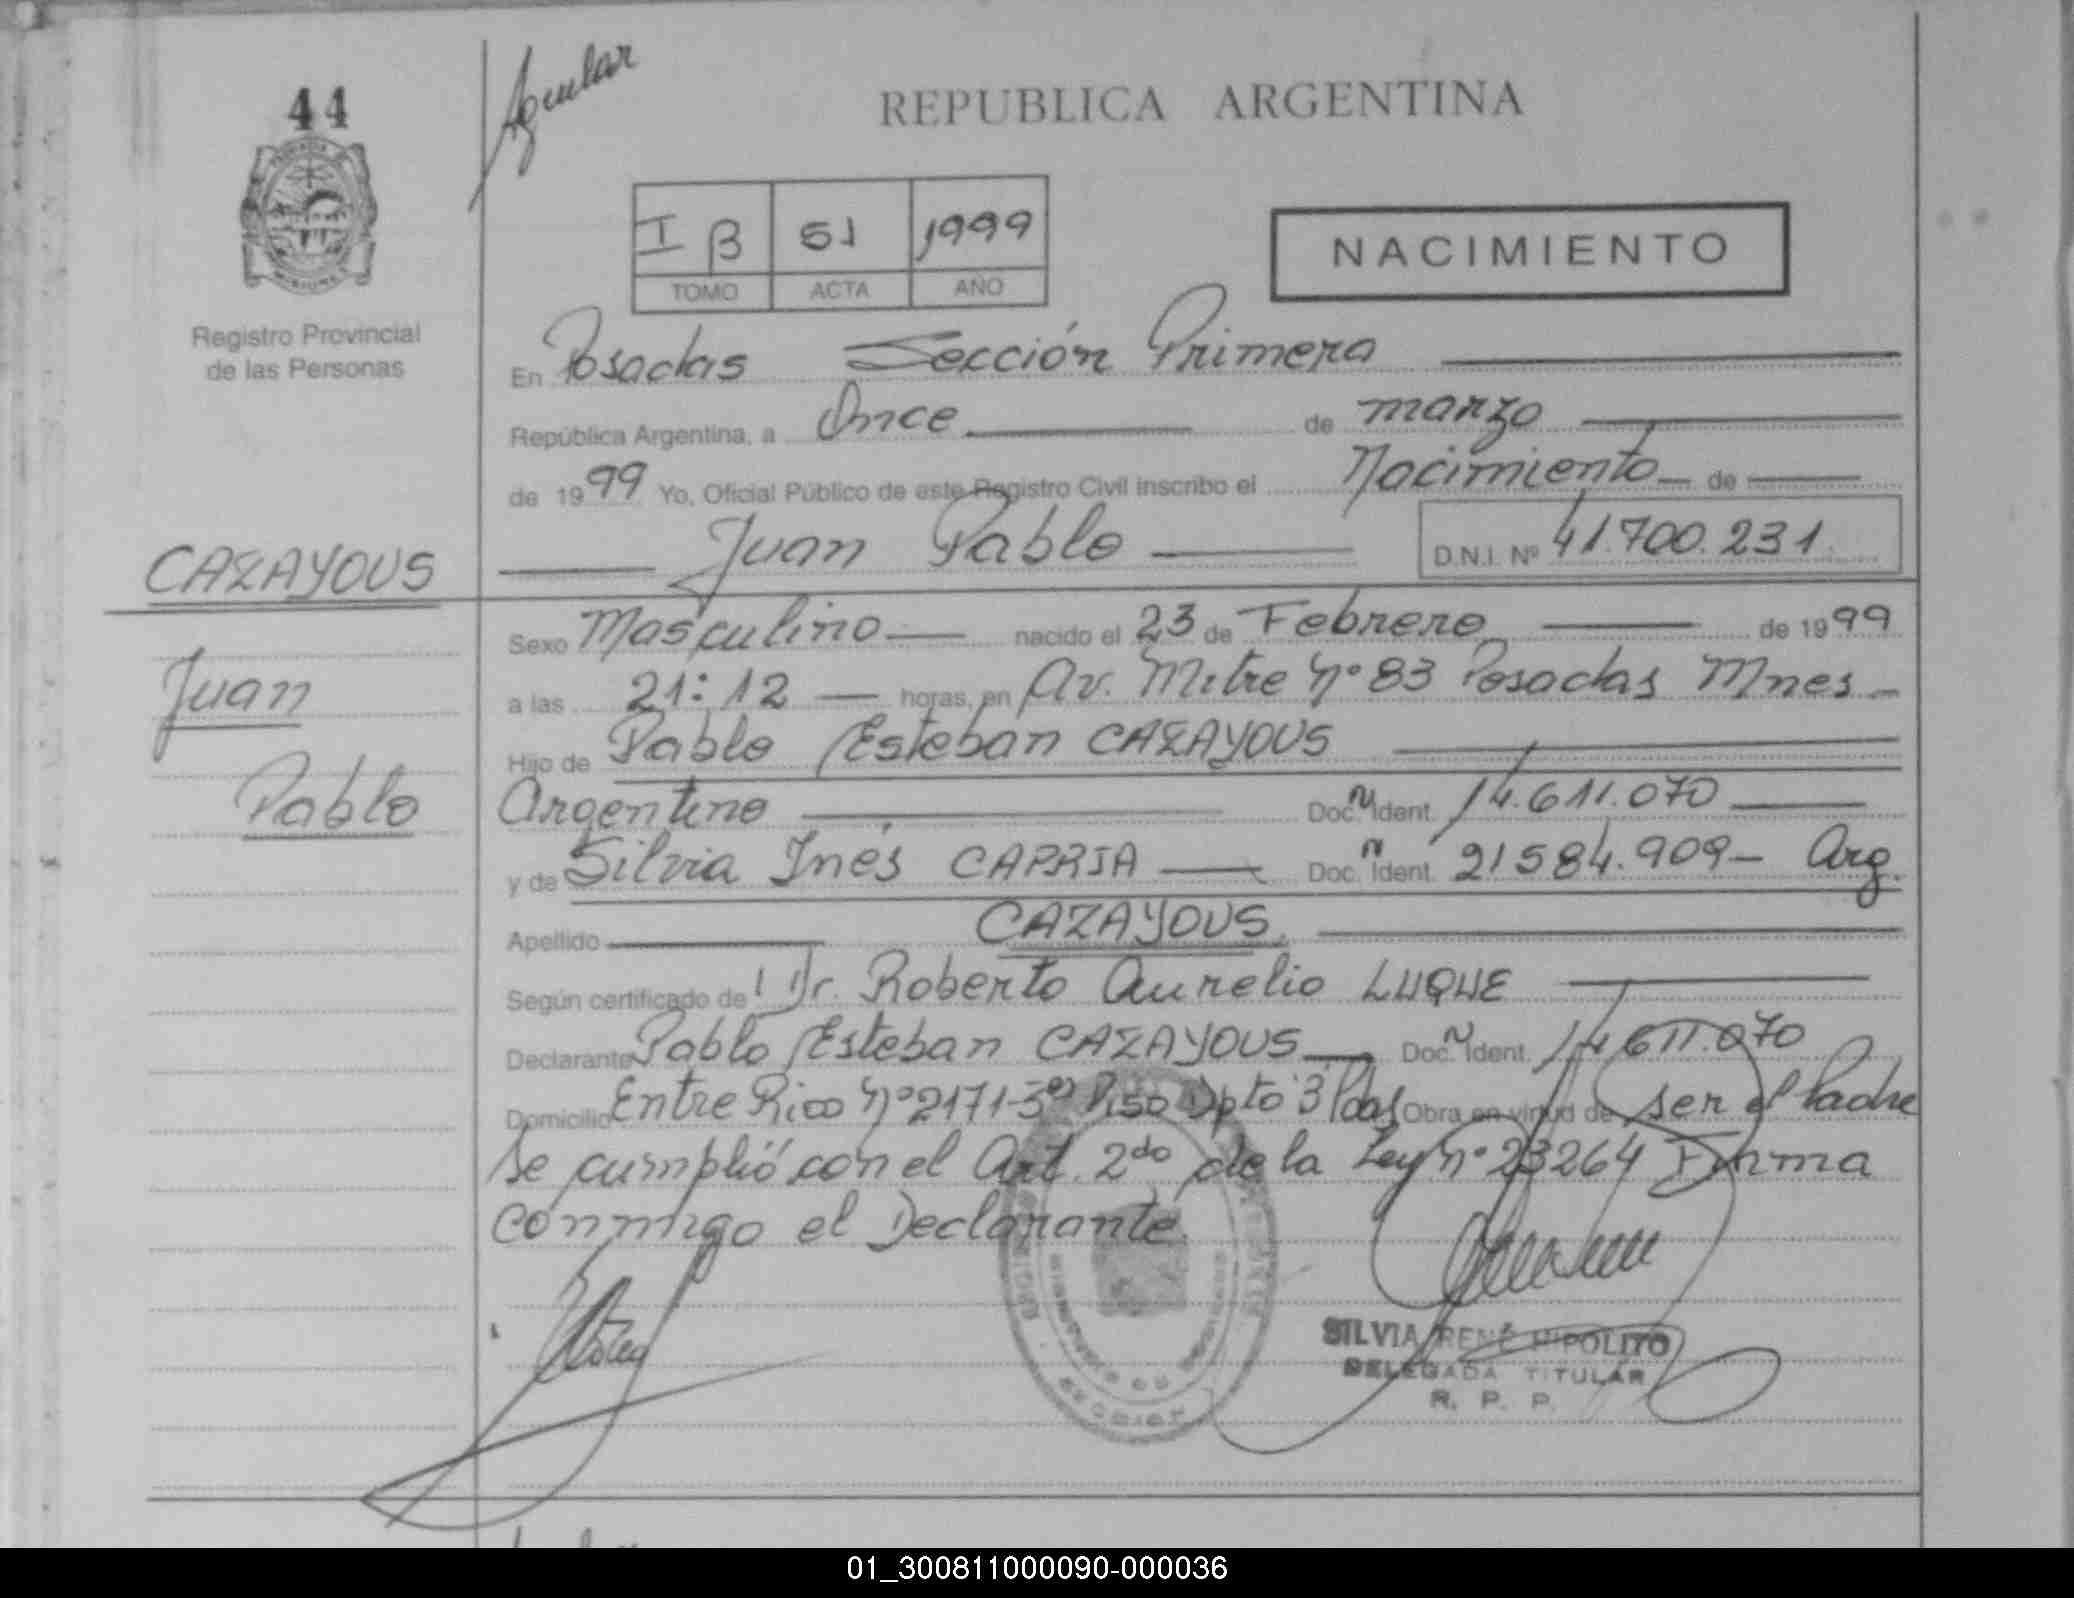 44
Aguilar
REPUBLICA ARGENTINA
I B 51 1999
TOMO ACTA AÑO
NACIMIENTO
Registro Provincial
de las Personas
En Posadas Sección Primera
República Argentina, a Once de marzo
de 1999 Yo, Oficial Público de este Registro Civil inscribo el Nacimiento de
Juan Pablo D.N.I. Nº 41.700.231
CAZAYOUS
Juan
Pablo
Sexo Masculino nacido el 23 de Febrero de 1999
a las 21:12 horas, en Av. Mitre Nº 83 Posadas Mnes
Hijo de Pablo Esteban CAZAYOUS
Argentino Doc. N Ident. 14.611.070
y de Silvia Inés CAPRIA Doc. N Ident. 21584.909- Arg.
Apellido CAZAYOUS
Según certificado de Dr. Roberto Aurelio LUQUE
Declarante Pablo Esteban CAZAYOUS Doc. N Ident. 14.611.070
Domicilio Entre Rios Nº 2171-3er Piso Dpto 3 Pdas Obra en virtud de ser el Padre
Se cumplió con el Art. 2do de la Ley Nº 23264 Firma
conmigo el Declarante.
SILVIA RENÉ HIPOLITO
DELEGADA TITULAR
R. P. P.
01_300811000090-000036